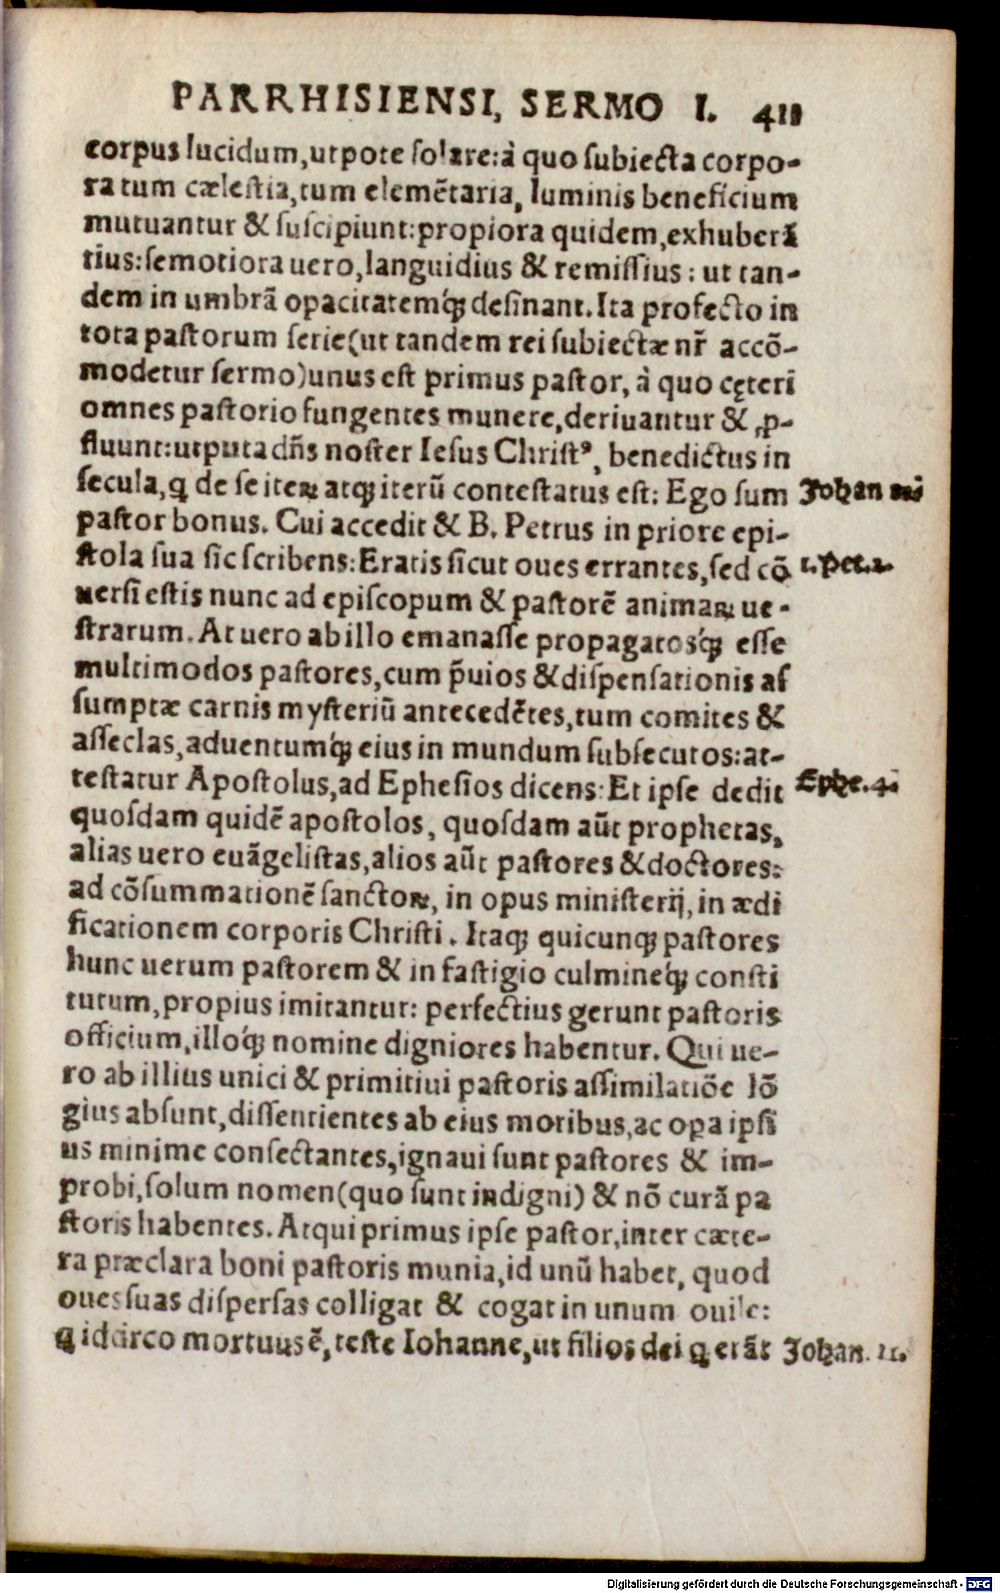 PARRHISIENSI, SERMO I. 411
corpus lucidum, utpote solare: à quo subiecta corpo-
ra tum cælestia, tum elemẽtaria, luminis beneficium
mutuantur & suscipiunt: propiora quidem, exhuberã
tius: semotiora uero, languidius & remissius: ut tan-
dem in umbrã opacitatemq́ꝫ desinant. Ita profecto in
tota pastorum serie (ut tandem rei subiectæ nr̃ accõ-
modetur sermo) unus est primus pastor, à quo cęteri
omnes pastorio fungentes munere, deriuantur & ꝓ-
fluunt: utputa dñs noster Iesus Christꝰ, benedictus in
secula, q de se iteꝝ atqꝫ iterũ contestatus est: Ego sum Johan
pastor bonus. Cui accedit & B. Petrus in priore epi-
stola sua sic scribens: Eratis sicut oues errantes, sed cõ 1. Pet. 2.
uersi estis nunc ad episcopum & pastorẽ animaꝝ ue-
strarum. At uero ab illo emanasse propagatosq́ꝫ esse
multimodos pastores, cum p̃uios & dispensationis as
sumptæ carnis mysteriũ antecedẽtes, tum comites &
asseclas, aduentumq́ꝫ eius in mundum subsecutos: at-
testatur Apostolus, ad Ephesios dicens: Et ipse dedit Ephe. 4.
quosdam quidẽ apostolos, quosdam aũt prophetas,
alias uero euãgelistas, alios aũt pastores & doctores:
ad cõsummationẽ sanctoꝝ, in opus ministerij, in ædi
ficationem corporis Christi. Itaqꝫ quicunqꝫ pastores
hunc uerum pastorem & in fastigio culmineq́ꝫ consti
tutum, propius imitantur: perfectius gerunt pastoris
officium, illoq́ꝫ nomine digniores habentur. Qui ue-
ro ab illius unici & primitiui pastoris assimilatiõe lõ
gius absunt, dissentientes ab eius moribus, ac oꝑa ipsi
us minime consectantes, ignaui sunt pastores & im-
probi, solum nomen (quo sunt indigni) & nõ curã pa
storis habentes. Atqui primus ipse pastor, inter cæte-
ra præclara boni pastoris munia, id unũ habet, quod
oues suas dispersas colligat & cogat in unum ouile:
q idcirco mortuus ẽ, teste Iohanne, ut filios dei q erãt Johan. 11.
Digitalisierung gefördert durch die Deutsche Forschungsgemeinschaft - DFG